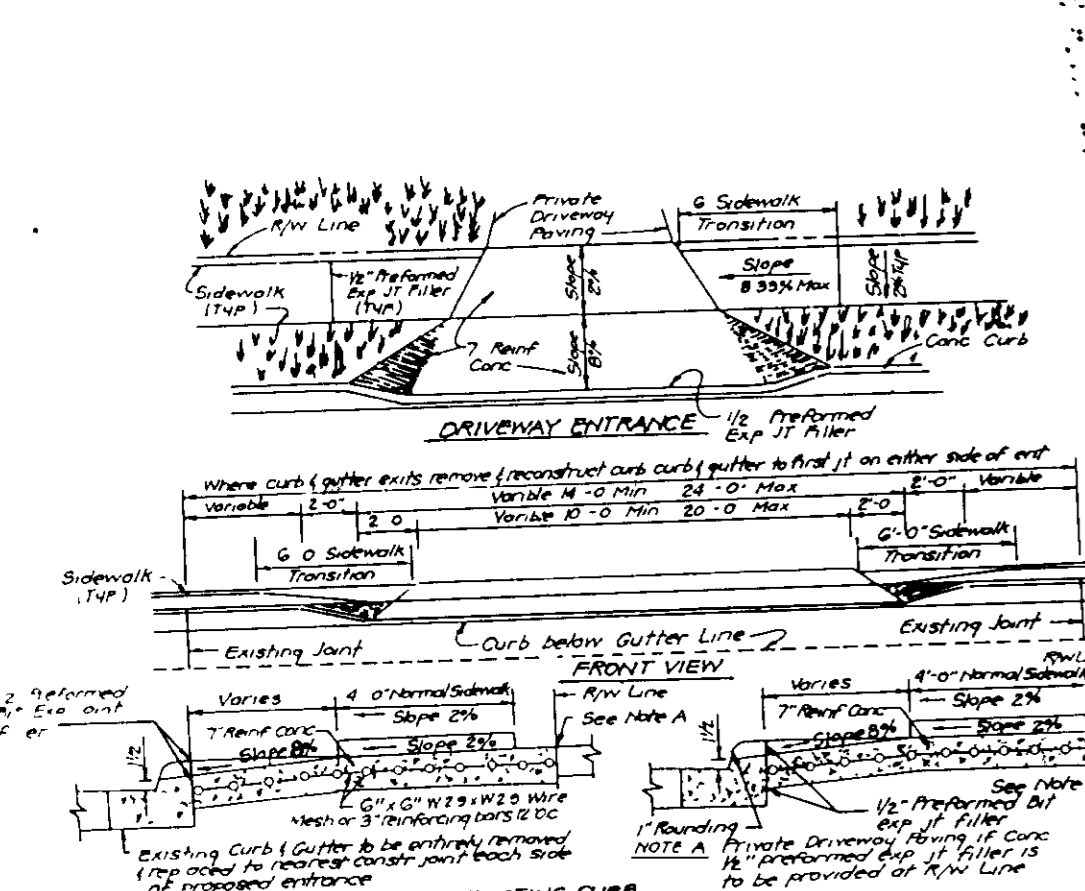 Private
Driveway
Paving
6 Sidewalk
Transition
R/W Line
Slope
8 33% Max
Slope
2% Typ
Sidewalk
(TYP)
1/2" Preformed
Exp JT Filler
(TYP)
Slope
2%
Slope
8%
7 Reinf
Conc
Conc Curb
DRIVEWAY ENTRANCE
1/2 Preformed
Exp JT Filler
Where curb & gutter exits remove & reconstruct curb curb & gutter to first jt on either side of ent
Variable
2'-0"
Varible 14 -0 Min 24 -0" Max
2'-0"
Variable
2 0
Varible 10 -0 Min 20 -0 Max
2'-0
6 0 Sidewalk
Transition
6'-0" Sidewalk
Transition
Sidewalk
(TYP)
Existing Joint
Curb below Gutter Line
Existing Joint
FRONT VIEW
2 Preformed
Varies
4 0" Normal Sidewalk
Slope 2%
R/W Line
See Note A
7" Reinf Conc
Slope 8%
Slope 2%
1 1/2
6" x 6" W29 x W29 Wire
Mesh or 3" reinforcing bars 12 OC
Existing Curb & Gutter to be entirely removed
& rep aced to nearest constr joint each side
of proposed entrance
Varies
4'-0" Normal Sidewalk
Slope 2%
7" Reinf Conc
Slope 8%
Slope 2%
1 1/2
See Note
1/2" Preformed Bit
exp jt filler
1" Rounding
NOTE A Private Driveway Paving if Conc
1/2" preformed exp jt filler is
to be provided at R/W Line